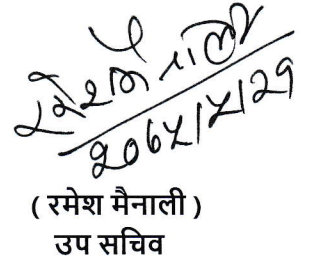 रमेश मैनाली
२०७५/५/२१
( रमेश मैनाली )
उप सचिव